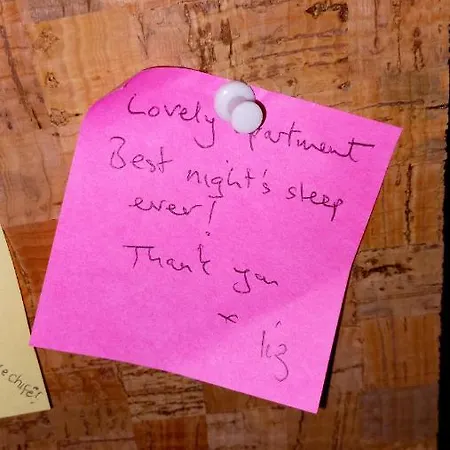 Lovely apartment
Best night's sleep
ever!
Thank you
x
liz